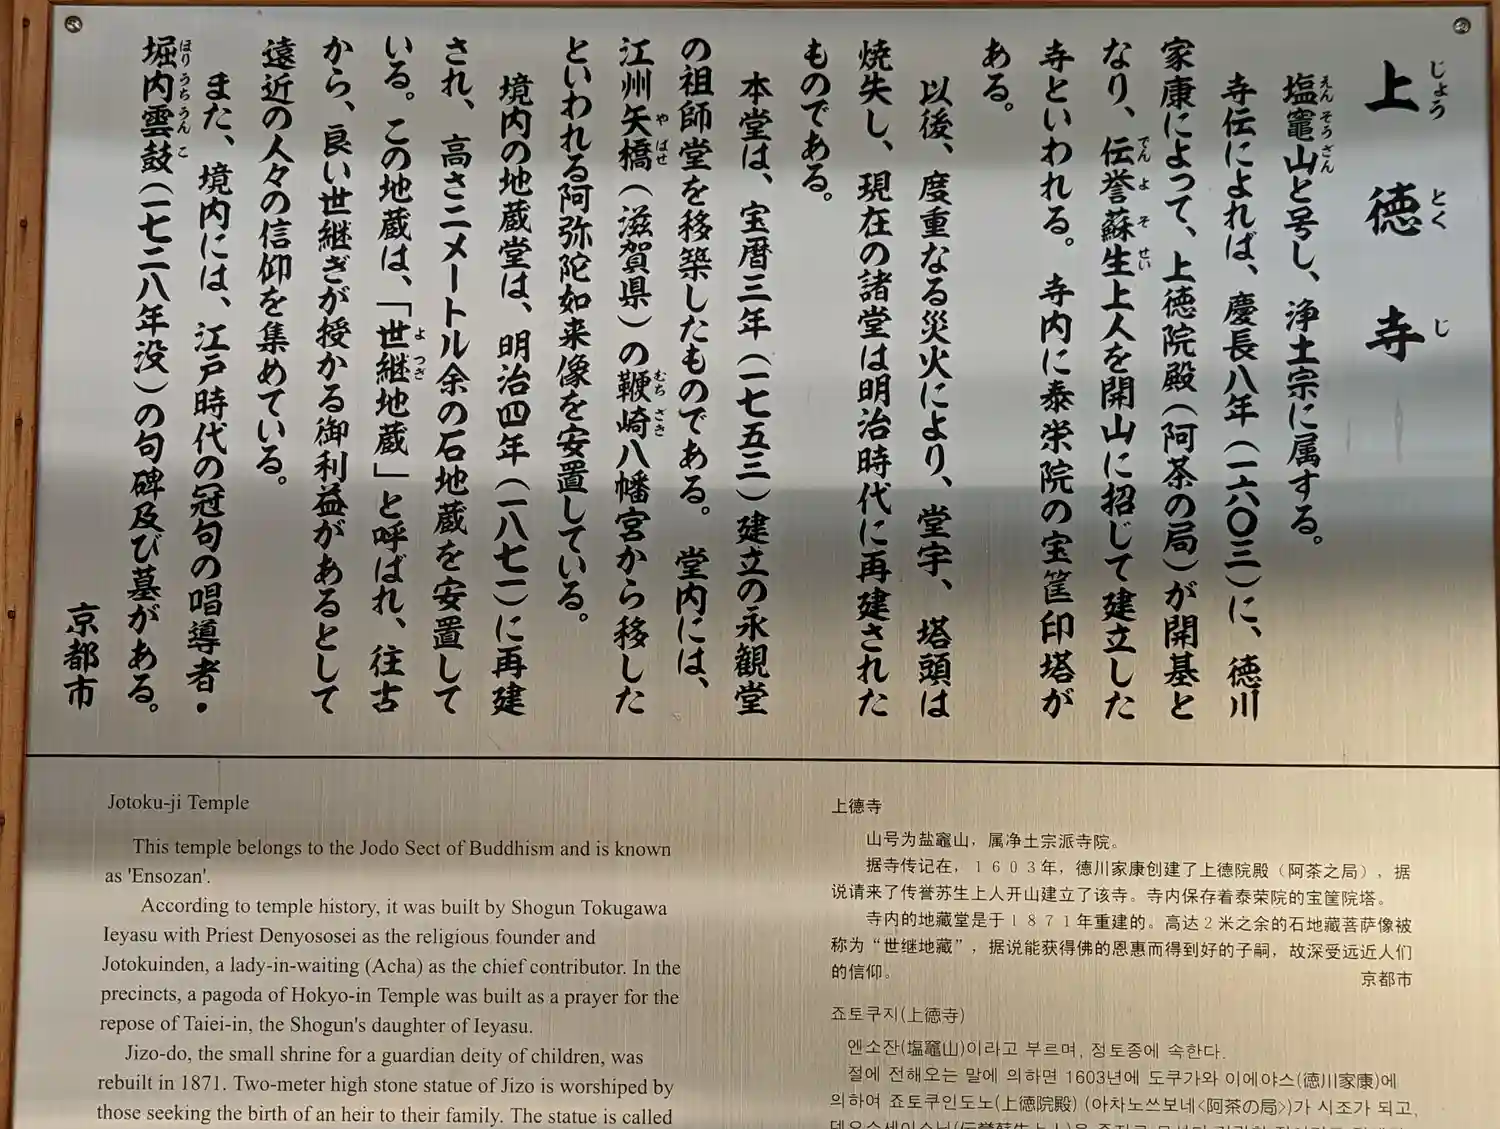 上徳寺
じょうとくじ
塩竈山と号し、浄土宗に属する。
えんそうざん
寺伝によれば、慶長八年(一六〇三)に、徳川
家康によって、上徳院殿(阿茶の局)が開基と
なり、伝誉蘇生上人を開山に招じて建立した
でんよそせい
寺といわれる。寺内に泰栄院の宝筐印塔が
ある。
以後、度重なる災火により、堂宇、塔頭は
焼失し、現在の諸堂は明治時代に再建された
ものである。
本堂は、宝暦三年(一七五三)建立の永観堂
の祖師堂を移築したものである。堂内には、
江州矢橋(滋賀県)の鞭崎八幡宮から移した
やばせ
むちざき
といわれる阿弥陀如来像を安置している。
境内の地蔵堂は、明治四年(一八七一)に再建
され、高さ二メートル余の石地蔵を安置して
いる。この地蔵は、「世継地蔵」と呼ばれ、往古
よつぎ
から、良い世継ぎが授かる御利益があるとして
遠近の人々の信仰を集めている。
また、境内には、江戸時代の冠句の唱導者・
堀内雲鼓(一七二八年没)の句碑及び墓がある。
ほりうちうんこ
京都市
Jotoku-ji Temple
This temple belongs to the Jodo Sect of Buddhism and is known
as 'Ensozan'.
According to temple history, it was built by Shogun Tokugawa
Ieyasu with Priest Denyososei as the religious founder and
Jotokuinden, a lady-in-waiting (Acha) as the chief contributor. In the
precincts, a pagoda of Hokyo-in Temple was built as a prayer for the
repose of Taiei-in, the Shogun's daughter of Ieyasu.
Jizo-do, the small shrine for a guardian deity of children, was
rebuilt in 1871. Two-meter high stone statue of Jizo is worshiped by
those seeking the birth of an heir to their family. The statue is called
上德寺
山号为盐竈山，属净土宗派寺院。
据寺传记在，１６０３年，德川家康创建了上德院殿（阿茶之局），据
说请来了传誉苏生上人开山建立了该寺。寺内保存着泰荣院的宝筐院塔。
寺内的地藏堂是于１８７１年重建的。高达２米之余的石地藏菩萨像被
称为“世继地藏”，据说能获得佛的恩惠而得到好的子嗣，故深受远近人们
的信仰。
京都市
죠토쿠지(上徳寺)
엔소잔(塩竈山)이라고 부르며, 정토종에 속한다.
절에 전해오는 말에 의하면 1603년에 도쿠가와 이에야스(徳川家康)에
의하여 죠토쿠인도노(上徳院殿) (아차노쓰보네<阿茶の局>)가 시조가 되고,